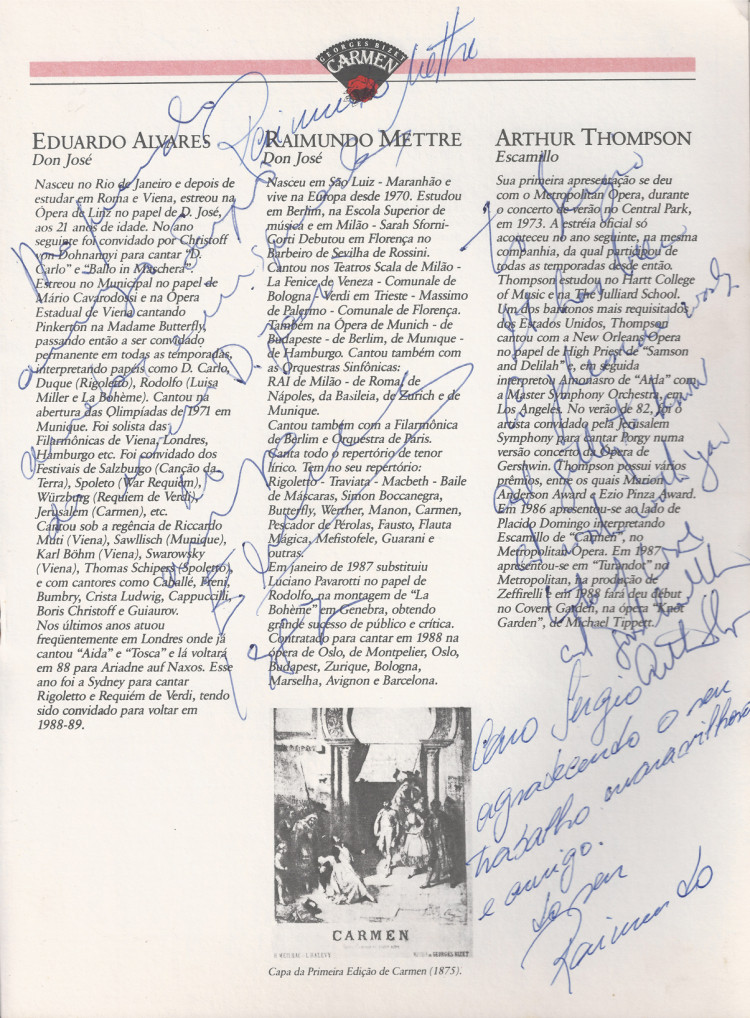 GEORGES BIZET
CARMEN
EDUARDO ALVARES
Don José
Nasceu no Rio de Janeiro e depois de
estudar em Roma e Viena, estreou na
Ópera de Linz no papel de D. José,
aos 21 anos de idade. No ano
seguinte foi convidado por Christoff
von Dohnanvi para cantar "D.
Carlo" e "Ballo in Maschera".
Estreou no Municipal no papel de
Mário Cavarodossi e na Ópera
Estadual de Viena cantando
Pinkerton na Madame Butterfly,
passando então a ser convidado
permanente em todas as temporadas,
interpretando papéis como D. Carlo,
Duque (Rigoletto), Rodolfo (Luisa
Miller e La Bohème). Cantou na
abertura das Olimpíadas de 1971 em
Munique. Foi solista das
Filarmônicas de Viena, Londres,
Hamburgo etc. Foi convidado dos
Festivais de Salzburgo (Canção da
Terra), Spoleto (War Requiem),
Würzberg (Requiem de Verdi),
Jerusalem (Carmen), etc.
Cantou sob a regência de Riccardo
Muti (Viena), Sawllisch (Munique),
Karl Böhm (Viena), Swarowsky
(Viena), Thomas Schipers (Spoletto),
e com cantores como Caballé, Freni,
Bumbry, Crista Ludwig, Cappuccilli,
Boris Christoff e Guiaurov.
Nos últimos anos atuou
freqüentemente em Londres onde já
cantou "Aida" e "Tosca" e lá voltará
em 88 para Ariadne auf Naxos. Esse
ano foi a Sydney para cantar
Rigoletto e Requiém de Verdi, tendo
sido convidado para voltar em
1988-89.
RAIMUNDO METTRE
Don José
Nasceu em São Luiz - Maranhão e
vive na Europa desde 1970. Estudou
em Berlim, na Escola Superior de
música e em Milão - Sarah Sforni-
Gorti Debutou em Florença no
Barbeiro de Sevilha de Rossini.
Cantou nos Teatros Scala de Milão -
La Fenice de Veneza - Comunale de
Bologna - Verdi em Trieste - Massimo
de Palermo - Comunale de Florença.
Também na Ópera de Munich - de
Budapeste - de Berlim, de Munique -
de Hamburgo. Cantou também com
as Orquestras Sinfônicas:
RAI de Milão - de Roma, de
Nápoles, da Basileia, de Zurich e de
Munique.
Cantou também com a Filarmônica
de Berlim e Orquestra de Paris.
Canta todo o repertório de tenor
lírico. Tem no seu repertório:
Rigoletto - Traviata - Macbeth - Baile
de Máscaras, Simon Boccanegra,
Butterfly, Werther, Manon, Carmen,
Pescador de Pérolas, Fausto, Flauta
Mágica, Mefistofele, Guarani e
outras.
Em janeiro de 1987 substituiu
Luciano Pavarotti no papel de
Rodolfo, na montagem de "La
Bohème" em Genebra, obtendo
grande sucesso de público e crítica.
Contratado para cantar em 1988 na
ópera de Oslo, de Montpelier, Oslo,
Budapest, Zurique, Bologna,
Marselha, Avignon e Barcelona.
ARTHUR THOMPSON
Escamillo
Sua primeira apresentação se deu
com o Metropolitan Opera, durante
o concerto de verão no Central Park,
em 1973. A estréia oficial só
aconteceu no ano seguinte, na mesma
companhia, da qual participou de
todas as temporadas desde então.
Thompson estudou no Hartt College
of Music e na The Julliard School.
Um dos barítonos mais requisitados
dos Estados Unidos, Thompson
cantou com a New Orleans Opera
no papel de High Priest de "Samson
and Delilah" e, em seguida
interpretou Amonasro de "Aida" com
a Master Symphony Orchestra, em
Los Angeles. No verão de 82, foi o
artista convidado pela Jerusalem
Symphony para cantar Porgy numa
versão concerto da Ópera de
Gershwin. Thompson possui vários
prêmios, entre os quais Marion
Anderson Award e Ezio Pinza Award.
Em 1986 apresentou-se ao lado de
Placido Domingo interpretando
Escamillo de "Carmen", no
Metropolitan Opera. Em 1987
apresentou-se em "Turandot" no
Metropolitan, na produção de
Zeffirelli e em 1988 fará deu début
no Covent Garden, na ópera "Knot
Garden", de Michael Tippett.
Raimundo Mettre
To Sergio
Caro Sergio
agradecendo o seu
trabalho maravilhoso
e amigo.
do seu
Raimundo
CARMEN
GEORGES BIZET
Capa da Primeira Edição de Carmen (1875).